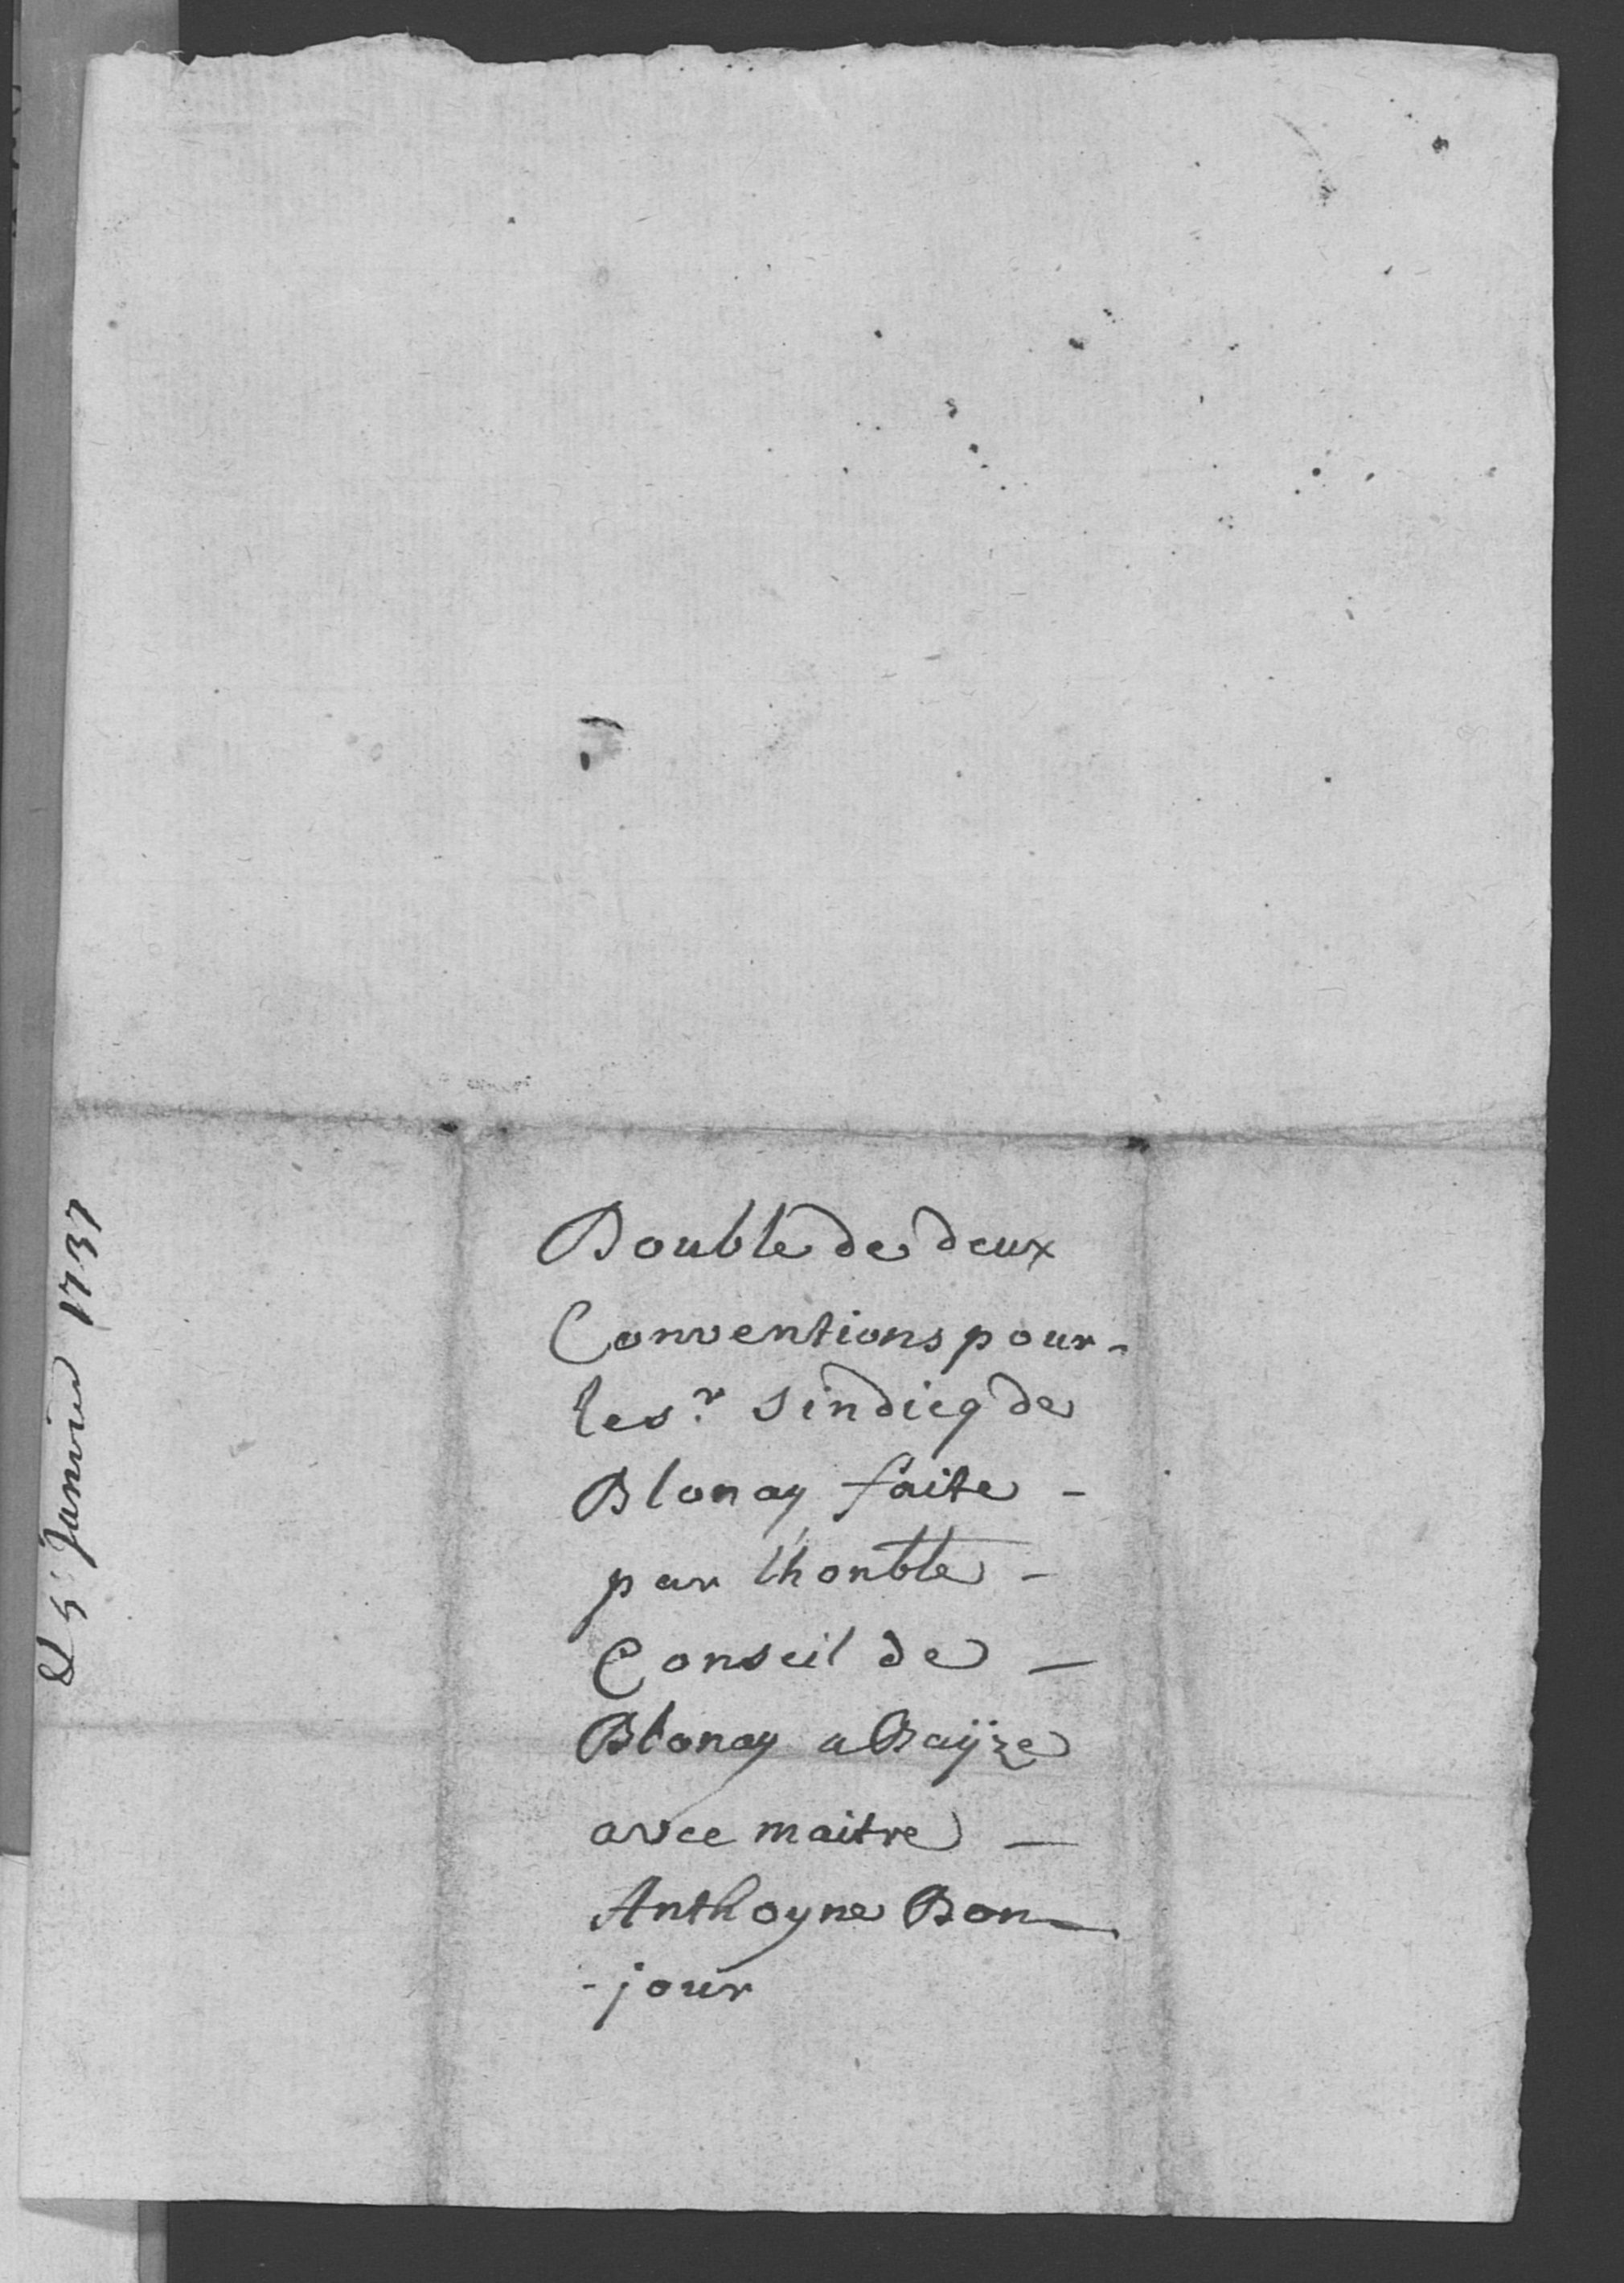 Double de deux
Conventions pour-
le sr. Sindicq de
Blonay faite -
par lhonble -
Conseil de -
Blonay a
avec maitre -
Anthoyne Bon-
-jour
Janvier 1737